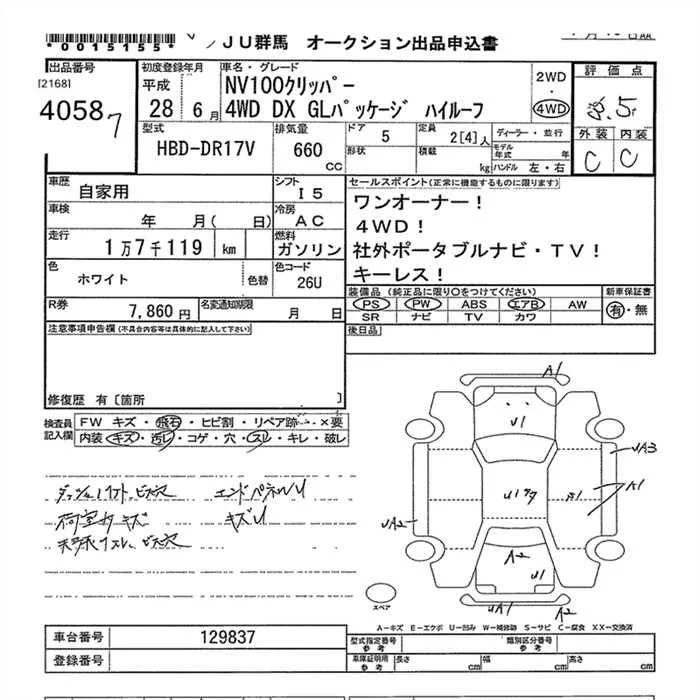 *0015155*
JU群馬 オークション出品申込書
出品番号
[2168]
40587
初度登録年月
平成
28 6月
車名・グレード
NV100クリッパー
4WD DX GLパッケージ ハイルーフ
2WD
4WD
評価点
3.5
外装 内装
C C
型式
HBD-DR17V
排気量
660
CC
ドア 5
形状
定員 2[4]人
積載 kg
ディーラー・並行
モデル年式 年
ハンドル 左・右
車歴
自家用
シフト
I5
車検
年 月( 日)
冷房
AC
走行
1万7千119 km
燃料
ガソリン
色
ホワイト
色替
色コード
26U
R券
7,860円
名変通知期限
月 日
セールスポイント(正常に機能するものに限ります)
ワンオーナー!
4WD!
社外ポータブルナビ・TV!
キーレス!
装備品(純正品に限り○をつけてください)
PS PW ABS エアB AW
SR ナビ TV カワ
新車保証書
有・無
後日品
注意事項申告欄(不具合内容等は具体的に記入して下さい)
修復歴 有[箇所 ]
検査員記入欄
FW キズ・飛石・ヒビ割・リペア跡・×要
内装・キズ・汚レ・コゲ・穴・スレ・キレ・破レ
エンドパネルU
キズU
A1
U1
UA3
A1
UA2
A2
U1
UA1
A2
スペア
A-キズ E-エクボ U-凹み W-補修跡 S-サビ C-腐食 XX-交換済
車台番号
129837
登録番号
型式指定番号
参考
類別区分番号
参考
車庫証明用
参考
長さ
cm
幅
cm
高さ
cm